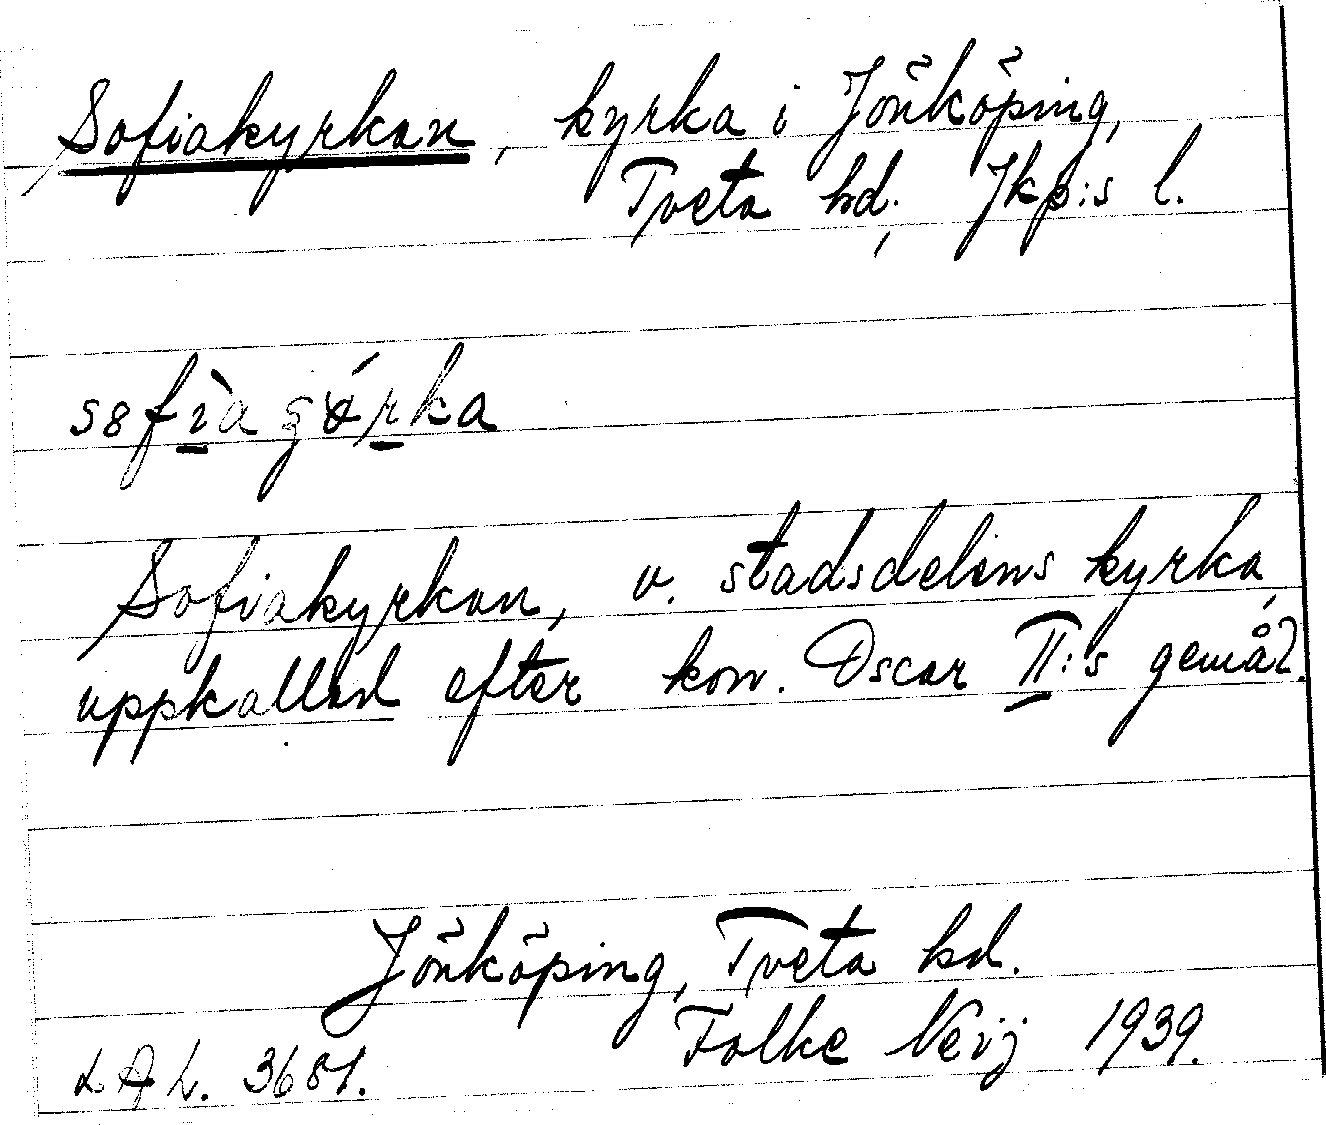 Sofiakyrkan, kyrka i Jönköping,
Tveta hd, Jkp:s l.
Sofiakyrkan, v. stadsdelens kyrka,
uppkallad efter kon. Oscar II:s gemål.
Jönköping, Tveta hd.
Folke Neij 1939.
LAL. 3681.